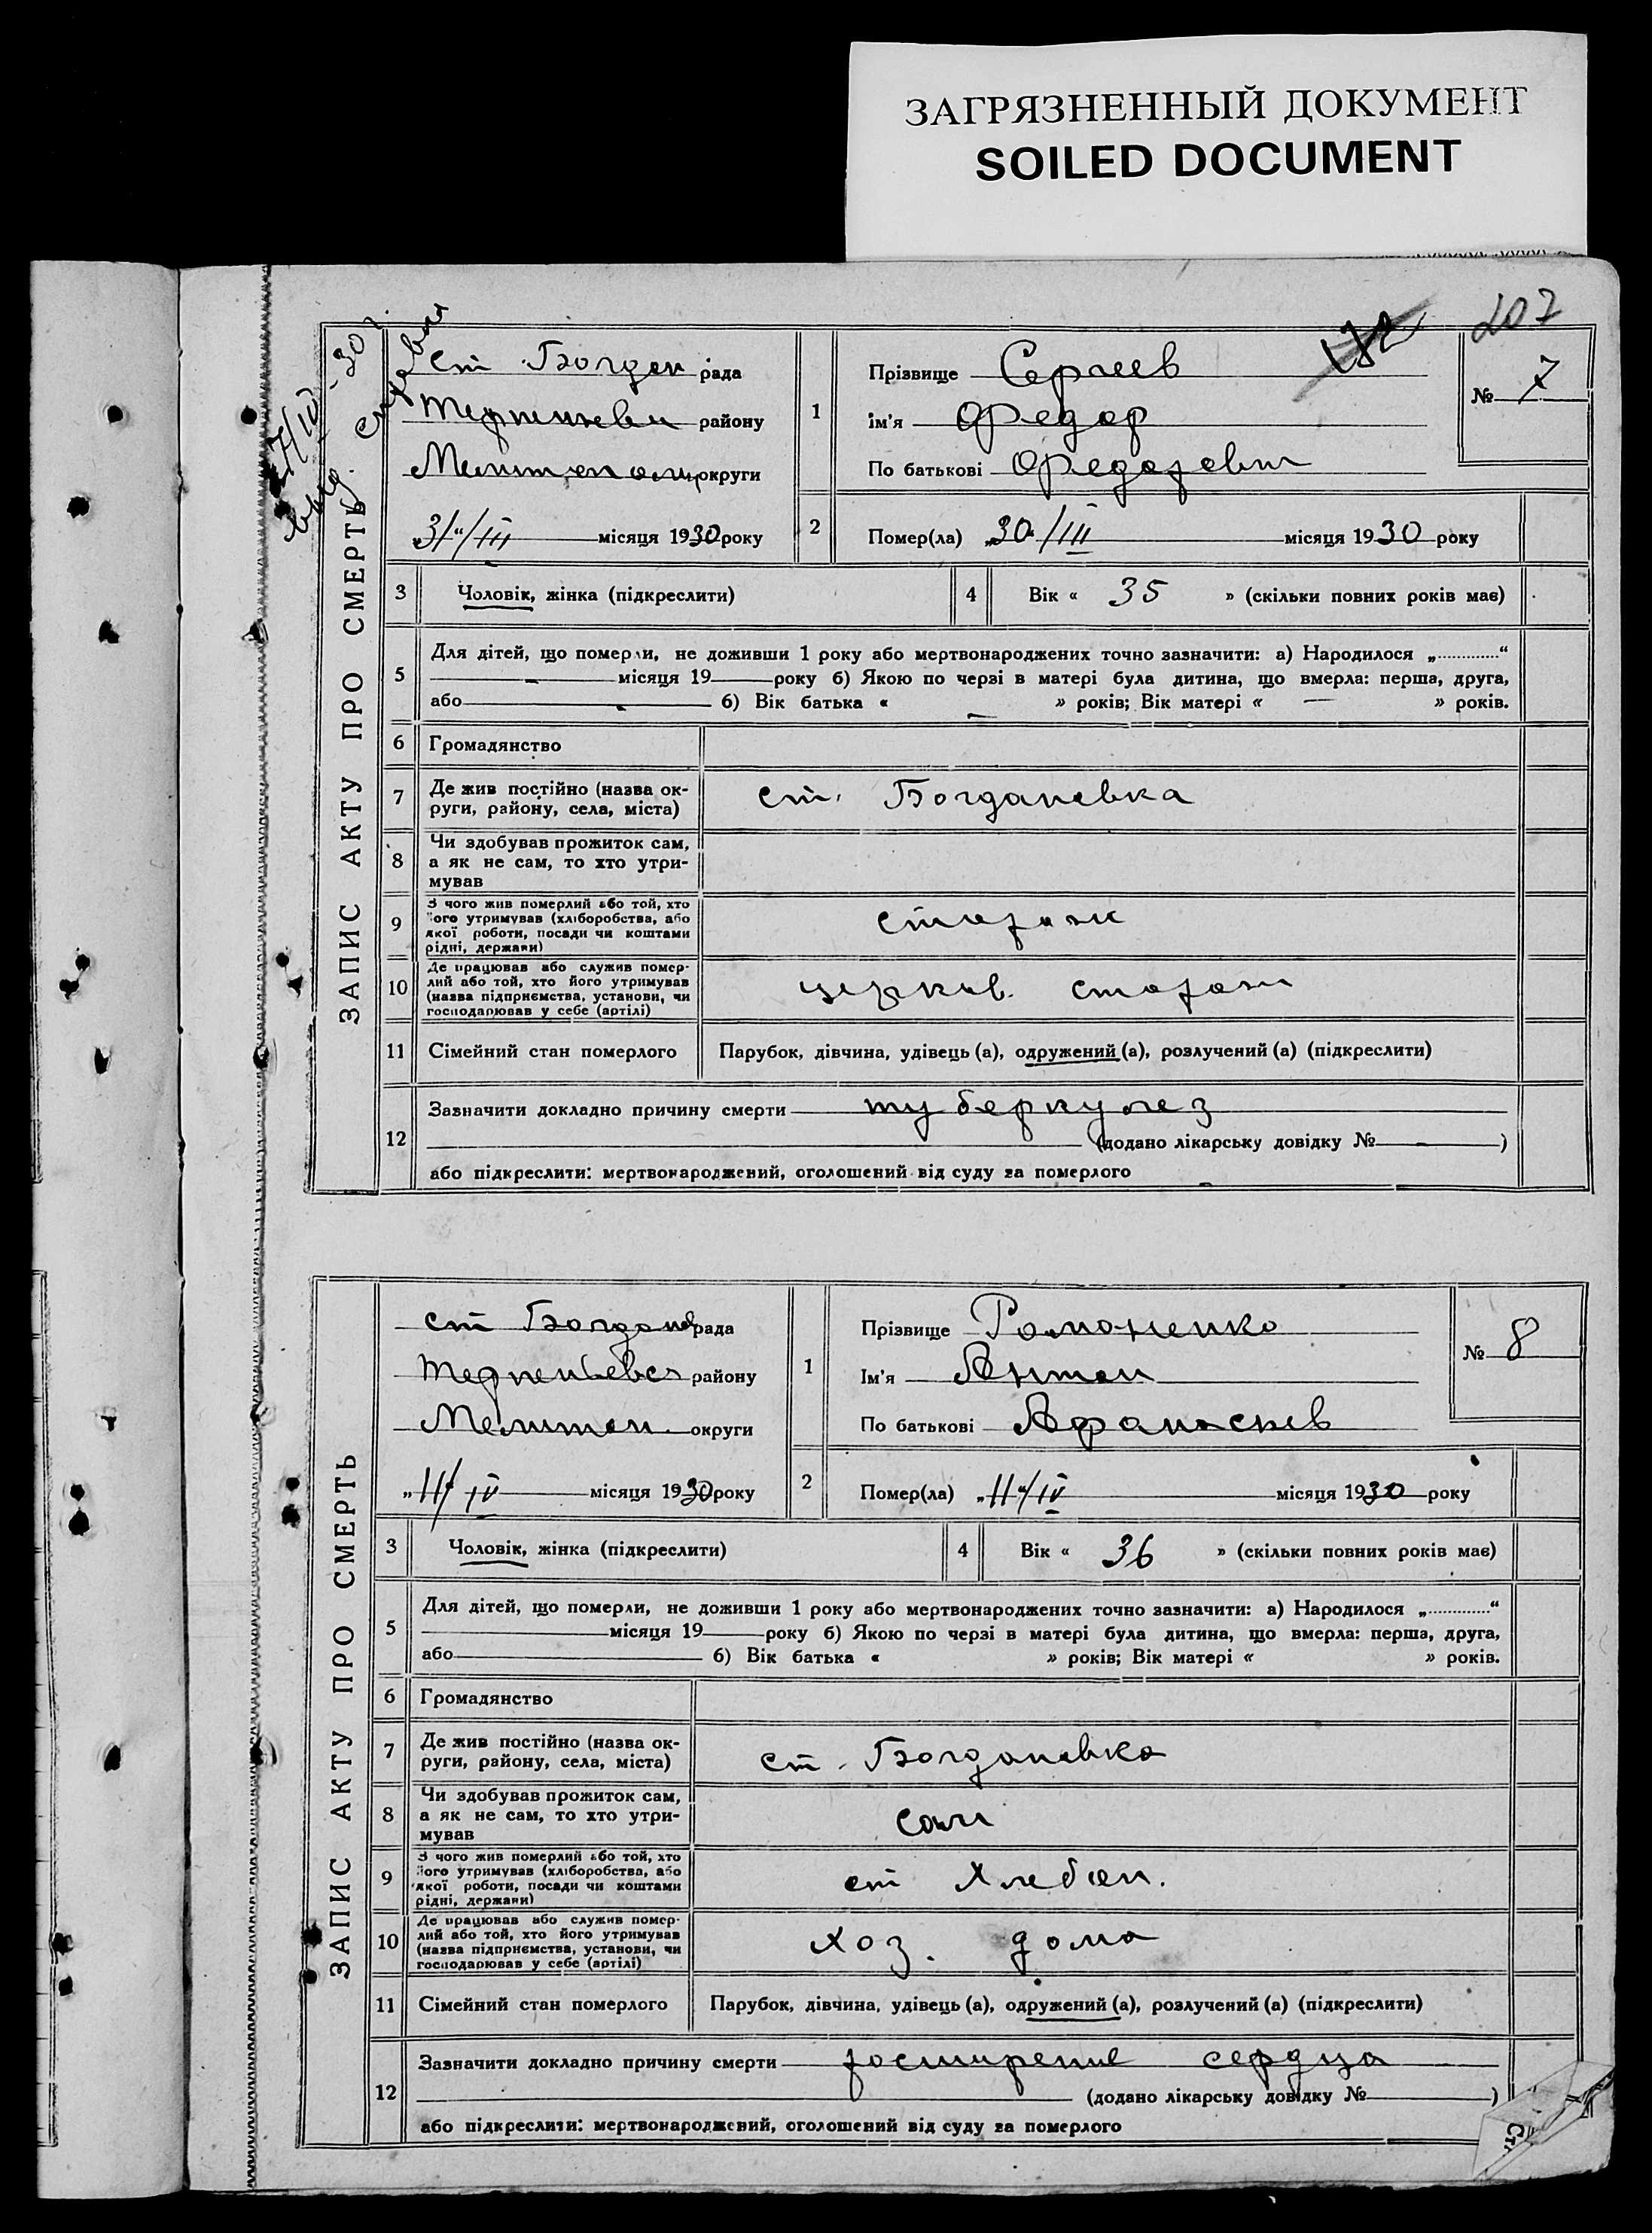 ЗАГРЯЗНЕННЫЙ ДОКУМЕНТ
SOILED DOCUMENT
207
ЗАПИС АКТУ ПРО СМЕРТЬ
27/IV - 30 г.
ст Богдан рада
району
Мелитополь округи
„31“/III місяця 1930 року
1
Прізвище Сергеев
ім'я Федор
По батькові Федорович
№ 7
2
Помер(ла) „30“/III місяця 1930 року
3 Чоловік, жінка (підкреслити)
4 Вік « 35 » (скільки повних років має)
5
Для дітей, що померли, не доживши 1 року або мертвонароджених точно зазначити: а) Народилося „............“
місяця 19 року б) Якою по черзі в матері була дитина, що вмерла: перша, друга,
або б) Вік батька « » років; Вік матері « » років.
6 Громадянство
7 Де жив постійно (назва ок-
руги, району, села, міста)
ст. Богдановка
8 Чи здобував прожиток сам,
а як не сам, то хто утри-
мував
9 З чого жив померлий або той, хто
його утримував (хліборобства, або
якої роботи, посади чи коштами
рідні, держави)
сторож
10 Де працював або служив помер-
лий або той, хто його утримував
(назва підприємства, установи, чи
господарював у себе (артілі)
церков. сторож
11 Сімейний стан померлого
Парубок, дівчина, удівець (а), одружений (а), розлучений (а) (підкреслити)
12
Зазначити докладно причину смерти туберкулез
(додано лікарську довідку № )
або підкреслити: мертвонароджений, оголошений від суду за померлого
ЗАПИС АКТУ ПРО СМЕРТЬ
ст Богданов рада
Терпеньевск району
Мелитоп. округи
„11“/IV місяця 1930 року
1
Прізвище Романенко
Ім'я Антон
По батькові Афанасиев
№ 8
2
Помер(ла) „11“/IV місяця 1930 року
3 Чоловік, жінка (підкреслити)
4 Вік « 36 » (скільки повних років має)
5
Для дітей, що померли, не доживши 1 року або мертвонароджених точно зазначити: а) Народилося „............“
місяця 19 року б) Якою по черзі в матері була дитина, що вмерла: перша, друга,
або б) Вік батька « » років; Вік матері « » років.
6 Громадянство
7 Де жив постійно (назва ок-
руги, району, села, міста)
ст. Богдановка
8 Чи здобував прожиток сам,
а як не сам, то хто утри-
мував
сам
9 З чого жив померлий або той, хто
його утримував (хліборобства, або
якої роботи, посади чи коштами
рідні, держави)
от хлебоп.
10 Де працював або служив помер-
лий або той, хто його утримував
(назва підприємства, установи, чи
господарював у себе (артілі)
хоз. дома
11 Сімейний стан померлого
Парубок, дівчина, удівець (а), одружений (а), розлучений (а) (підкреслити)
12
Зазначити докладно причину смерти росширение сердца
(додано лікарську довідку № )
або підкреслити: мертвонароджений, оголошений від суду за померлого